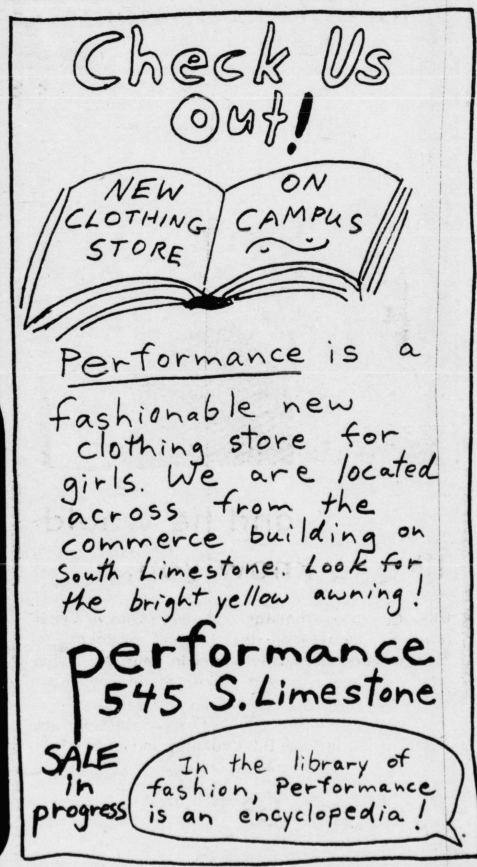 Check Us
Out!
NEW
CLOTHING
STORE
ON
CAMPUS
Performance is a
fashionable new
clothing store for
girls. We are located
across from the
commerce building on
South Limestone. Look for
the bright yellow awning!
performance
545 S. Limestone
SALE
in
progress
In the library of
fashion, Performance
is an encyclopedia!